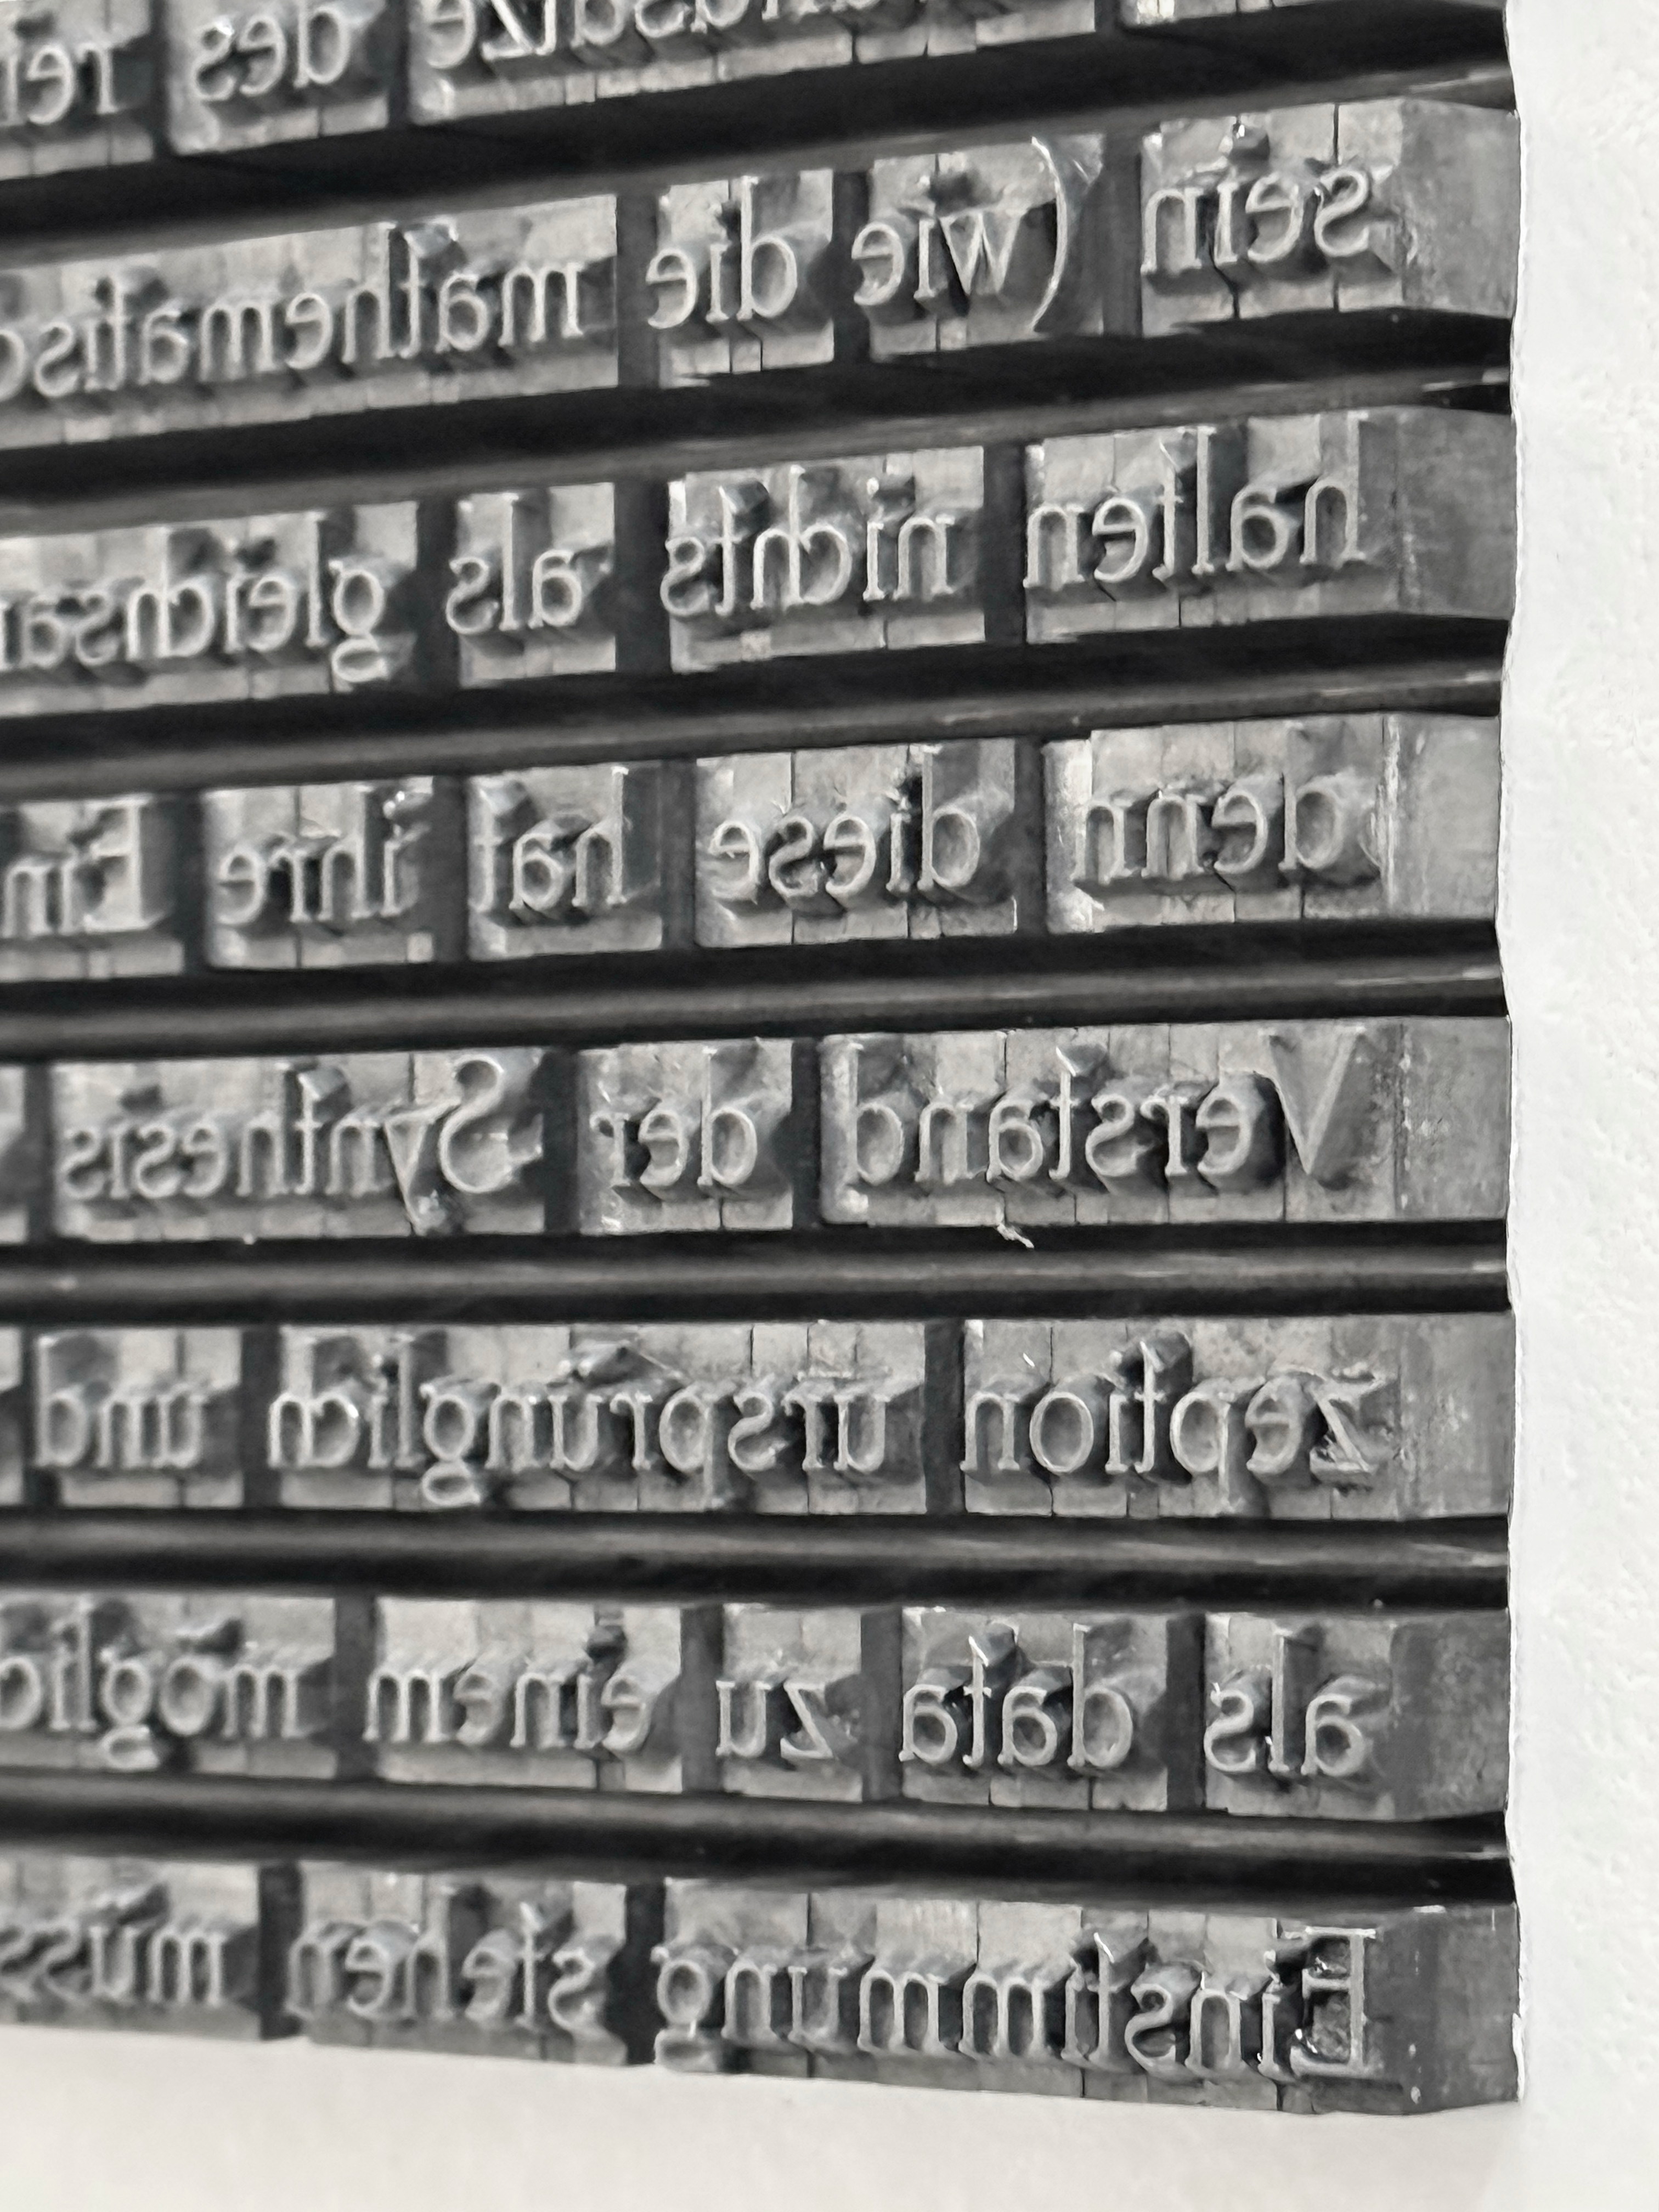 des rei
sein (wie die mathematisc
halten nichts als gleichsa
denn diese hat ihre Ein
Verstand der Synthesis
zeption ursprünglich und
als data zu einem möglic
Einstimmung stehen müss